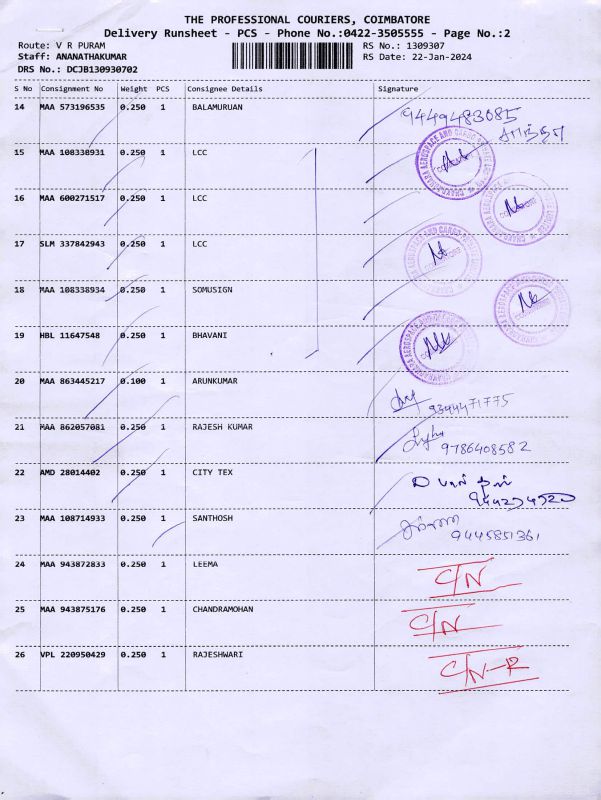 THE PROFESSIONAL COURIERS, COIMBATORE
Delivery Runsheet - PCS - Phone No.:0422-3505555 - Page No.:2
Route: V R PURAM RS No.: 1309307
Staff: ANANATHAKUMAR RS Date: 22-Jan-2024
DRS No.: DCJB130930702
S No Consignment No Weight PCS Consignee Details Signature
14 MAA 573196535 0.250 1 BALAMURUAN 9449483085
15 MAA 108338931 0.250 1 LCC
16 MAA 600271517 0.250 1 LCC
17 SLM 337842943 0.250 1 LCC
18 MAA 108338934 0.250 1 SOMUSIGN
19 HBL 11647548 0.250 1 BHAVANI
20 MAA 863445217 0.100 1 ARUNKUMAR
9394471775
21 MAA 862057081 0.250 1 RAJESH KUMAR
9786408582
22 AMD 28014402 0.250 1 CITY TEX
23 MAA 108714933 0.250 1 SANTHOSH
9445851361
24 MAA 943872833 0.250 1 LEEMA C/N
25 MAA 943875176 0.250 1 CHANDRAMOHAN C/N
26 VPL 220950429 0.250 1 RAJESHWARI C/N-R